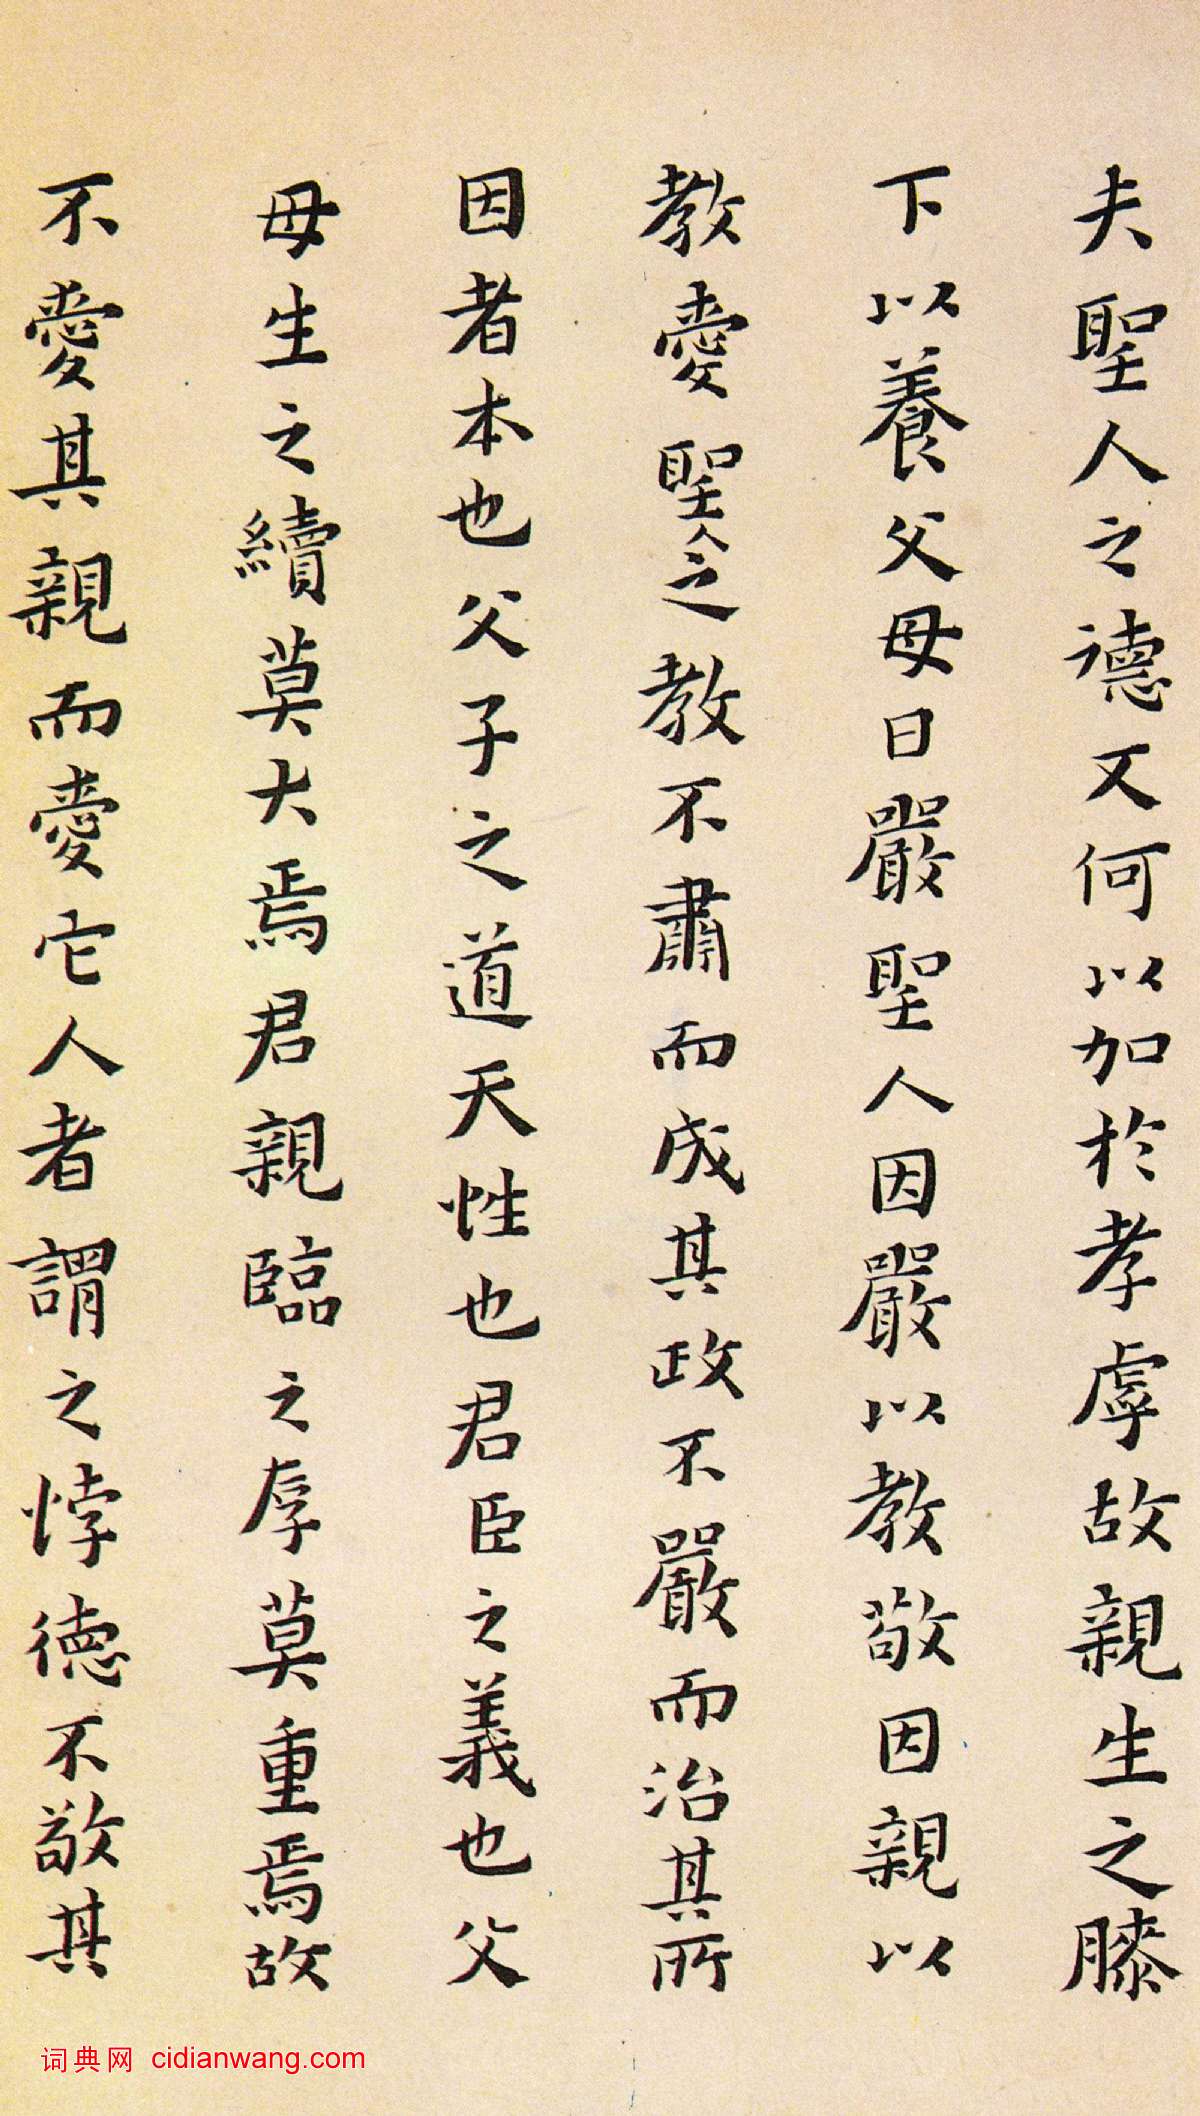 夫聖人之德又何以加於孝虖故親生之膝
下以養父母日嚴聖人因嚴以教敬因親以
教愛聖人之教不肅而成其政不嚴而治其所
因者本也父子之道天性也君臣之義也父
母生之續莫大焉君親臨之厚莫重焉故
不愛其親而愛它人者謂之悖德不敬其
词典网 cidianwang.com